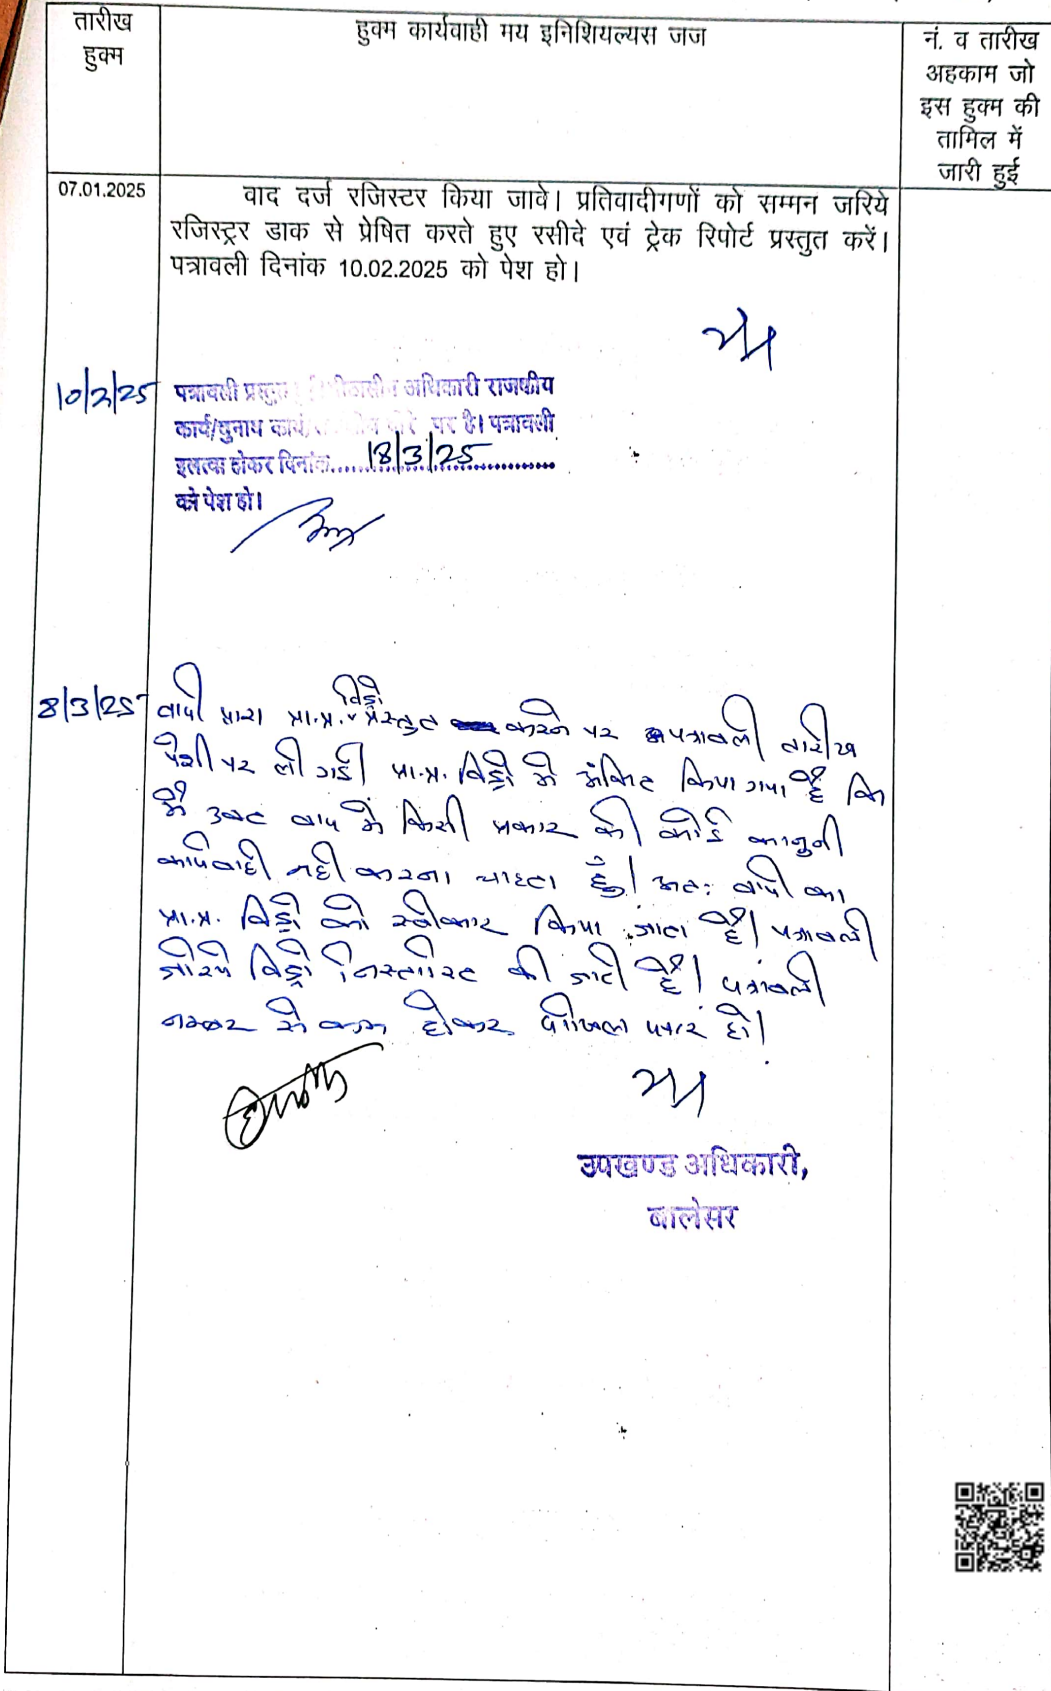 तारीख
हुक्म
हुक्म कार्यवाही मय इनिशियल्यस जज
नं. व तारीख
अहकाम जो
इस हुक्म की
तामिल में
जारी हुई
07.01.2025
वाद दर्ज रजिस्टर किया जावे। प्रतिवादीगणों को सम्मन जरिये
रजिस्ट्रर डाक से प्रेषित करते हुए रसीदे एवं ट्रेक रिपोर्ट प्रस्तुत करें।
पत्रावली दिनांक 10.02.2025 को पेश हो।
10/2/25
पत्रावली प्रस्तुत अधिकारी राजकीय
कार्य/चुनाव कार्य/ पर है। पत्रावली
इलत्वा होकर दिनांक.....18/3/25.....
को पेश हो।
8/3/25
वादी द्वारा प्रा.प्र. विड्रो प्रस्तुत करने पर पत्रावली तारीख
पेशी पर ली गई। प्रा.प्र. विड्रो मे अंकित किया गया है कि
मैं उक्त वाद में किसी प्रकार की कोई कानुनी
कार्यवाही नही करना चाहता हूँ। अतः वादी का
प्रा.प्र. विड्रो को स्वीकार किया जाता है। पत्रावली
जरिये विड्रो निस्तारित की जाती है। पत्रावली
नम्बर से कम होकर दाखिल दफ्तर हो।
उपखण्ड अधिकारी,
बालेसर